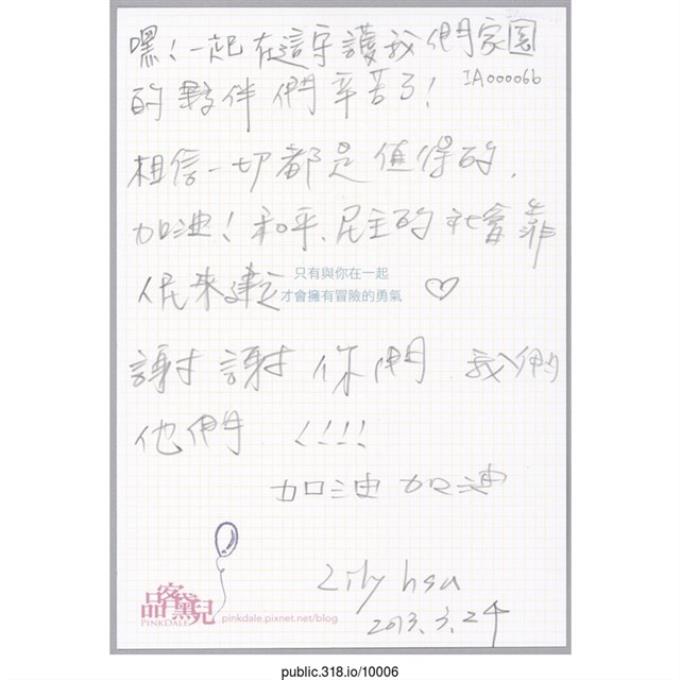 嘿！一起在這守護我們家園
IA00006b
的夥伴們辛苦了！
相信一切都是值得的，
加油！和平、民主的社會靠
只有與你在一起
人民來建立
才會擁有冒險的勇氣
謝謝你們 我們
他們 !!!!
加油 加油
品客黛兒
PINKDALE
pinkdale.pixnet.net/blog
Lily hsu
2013.3.24
public.318.io/10006